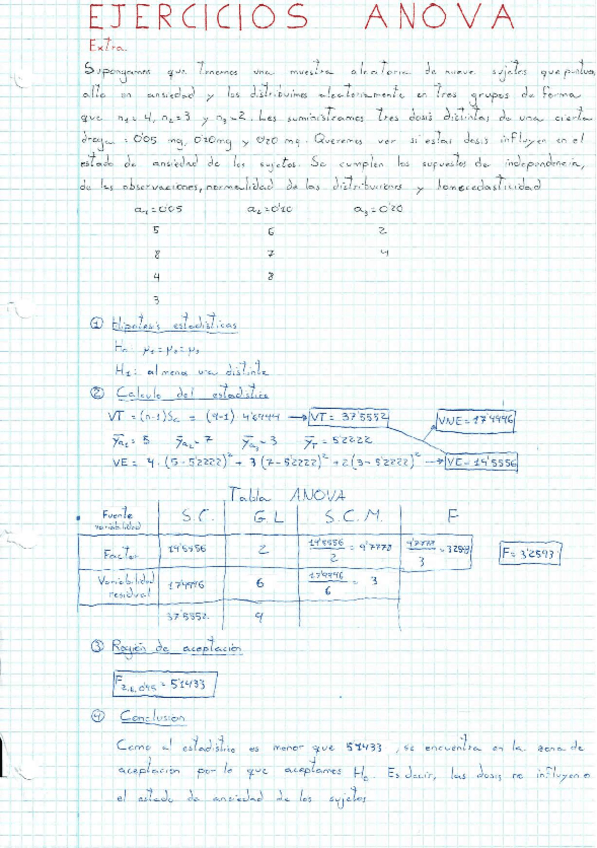 EJERCICIOS ANOVA
Extra.
Supongamos que tenemos una muestra aleatoria de nueve sujetos que puntúa
alto en ansiedad y los distribuimos aleatoriamente en tres grupos de forma
que n₁=4, n₂=3 y n₃=2. Les suministramos tres dosis distintas de una cierta
droga = 0'05 mg, 0'10mg y 0'20 mg. Queremos ver si estas dosis influyen en el
estado de ansiedad de los sujetos. Se cumplen los supuestos de independencia,
de las observaciones, normalidad de las distribuciones y homocedasticidad
a₁=0'05 a₂=0'10 a₃=0'20
5 6 2
8 7 4
4 8
3
① Hipótesis estadísticas
H₀: μ₁=μ₂=μ₃
H₁: al menos una distinta
② Calculo del estadístico
VT = (n-1)Sc = (9-1) 4'6944 → VT= 37'5552 VNE=17'9996
ȳa₁= 5 ȳa₂= 7 ȳa₃= 3 ȳT= 5'2222
VE= 4·(5-5'2222)² + 3(7-5'2222)² +2(3-5'2222)² → VE=19'5556
Tabla ANOVA
Fuente variabilidad S.C. G.L S.C.M. F
Factor 19'5556 2 19'5556/2 = 9'7778 9'7778/3 = F= 3'2593
Variabilidad residual 17'9996 6 17'9996/6 = 3
37'5552 9
③ Región de aceptación
F₂,₆,₀'₉₅ = 5'1433
④ Conclusión
Como el estadístico es menor que 5'1433, se encuentra en la zona de
aceptación por lo que aceptamos H₀. Es decir, las dosis no influyen e
el estado de ansiedad de los sujetos